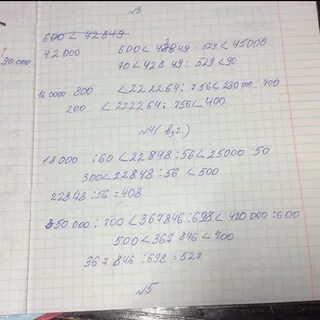 N3
600 < 42849
42 000 600 < 42849 : 529 < 45000
30000 70 < 428 49 : 529 < 90
16 0000 800 < 222264 : 756 < 280 000 : 400
200 < 222264 : 756 < 400
N4(в,г.)
18000 : 60 < 22848 : 56 < 25000 : 50
300 < 22848 : 56 < 500
22848 : 56 = 408
350 000 : 700 < 367846 : 698 < 420 000 : 600
500 < 367 846 < 700
367 846 : 698 = 527
N5